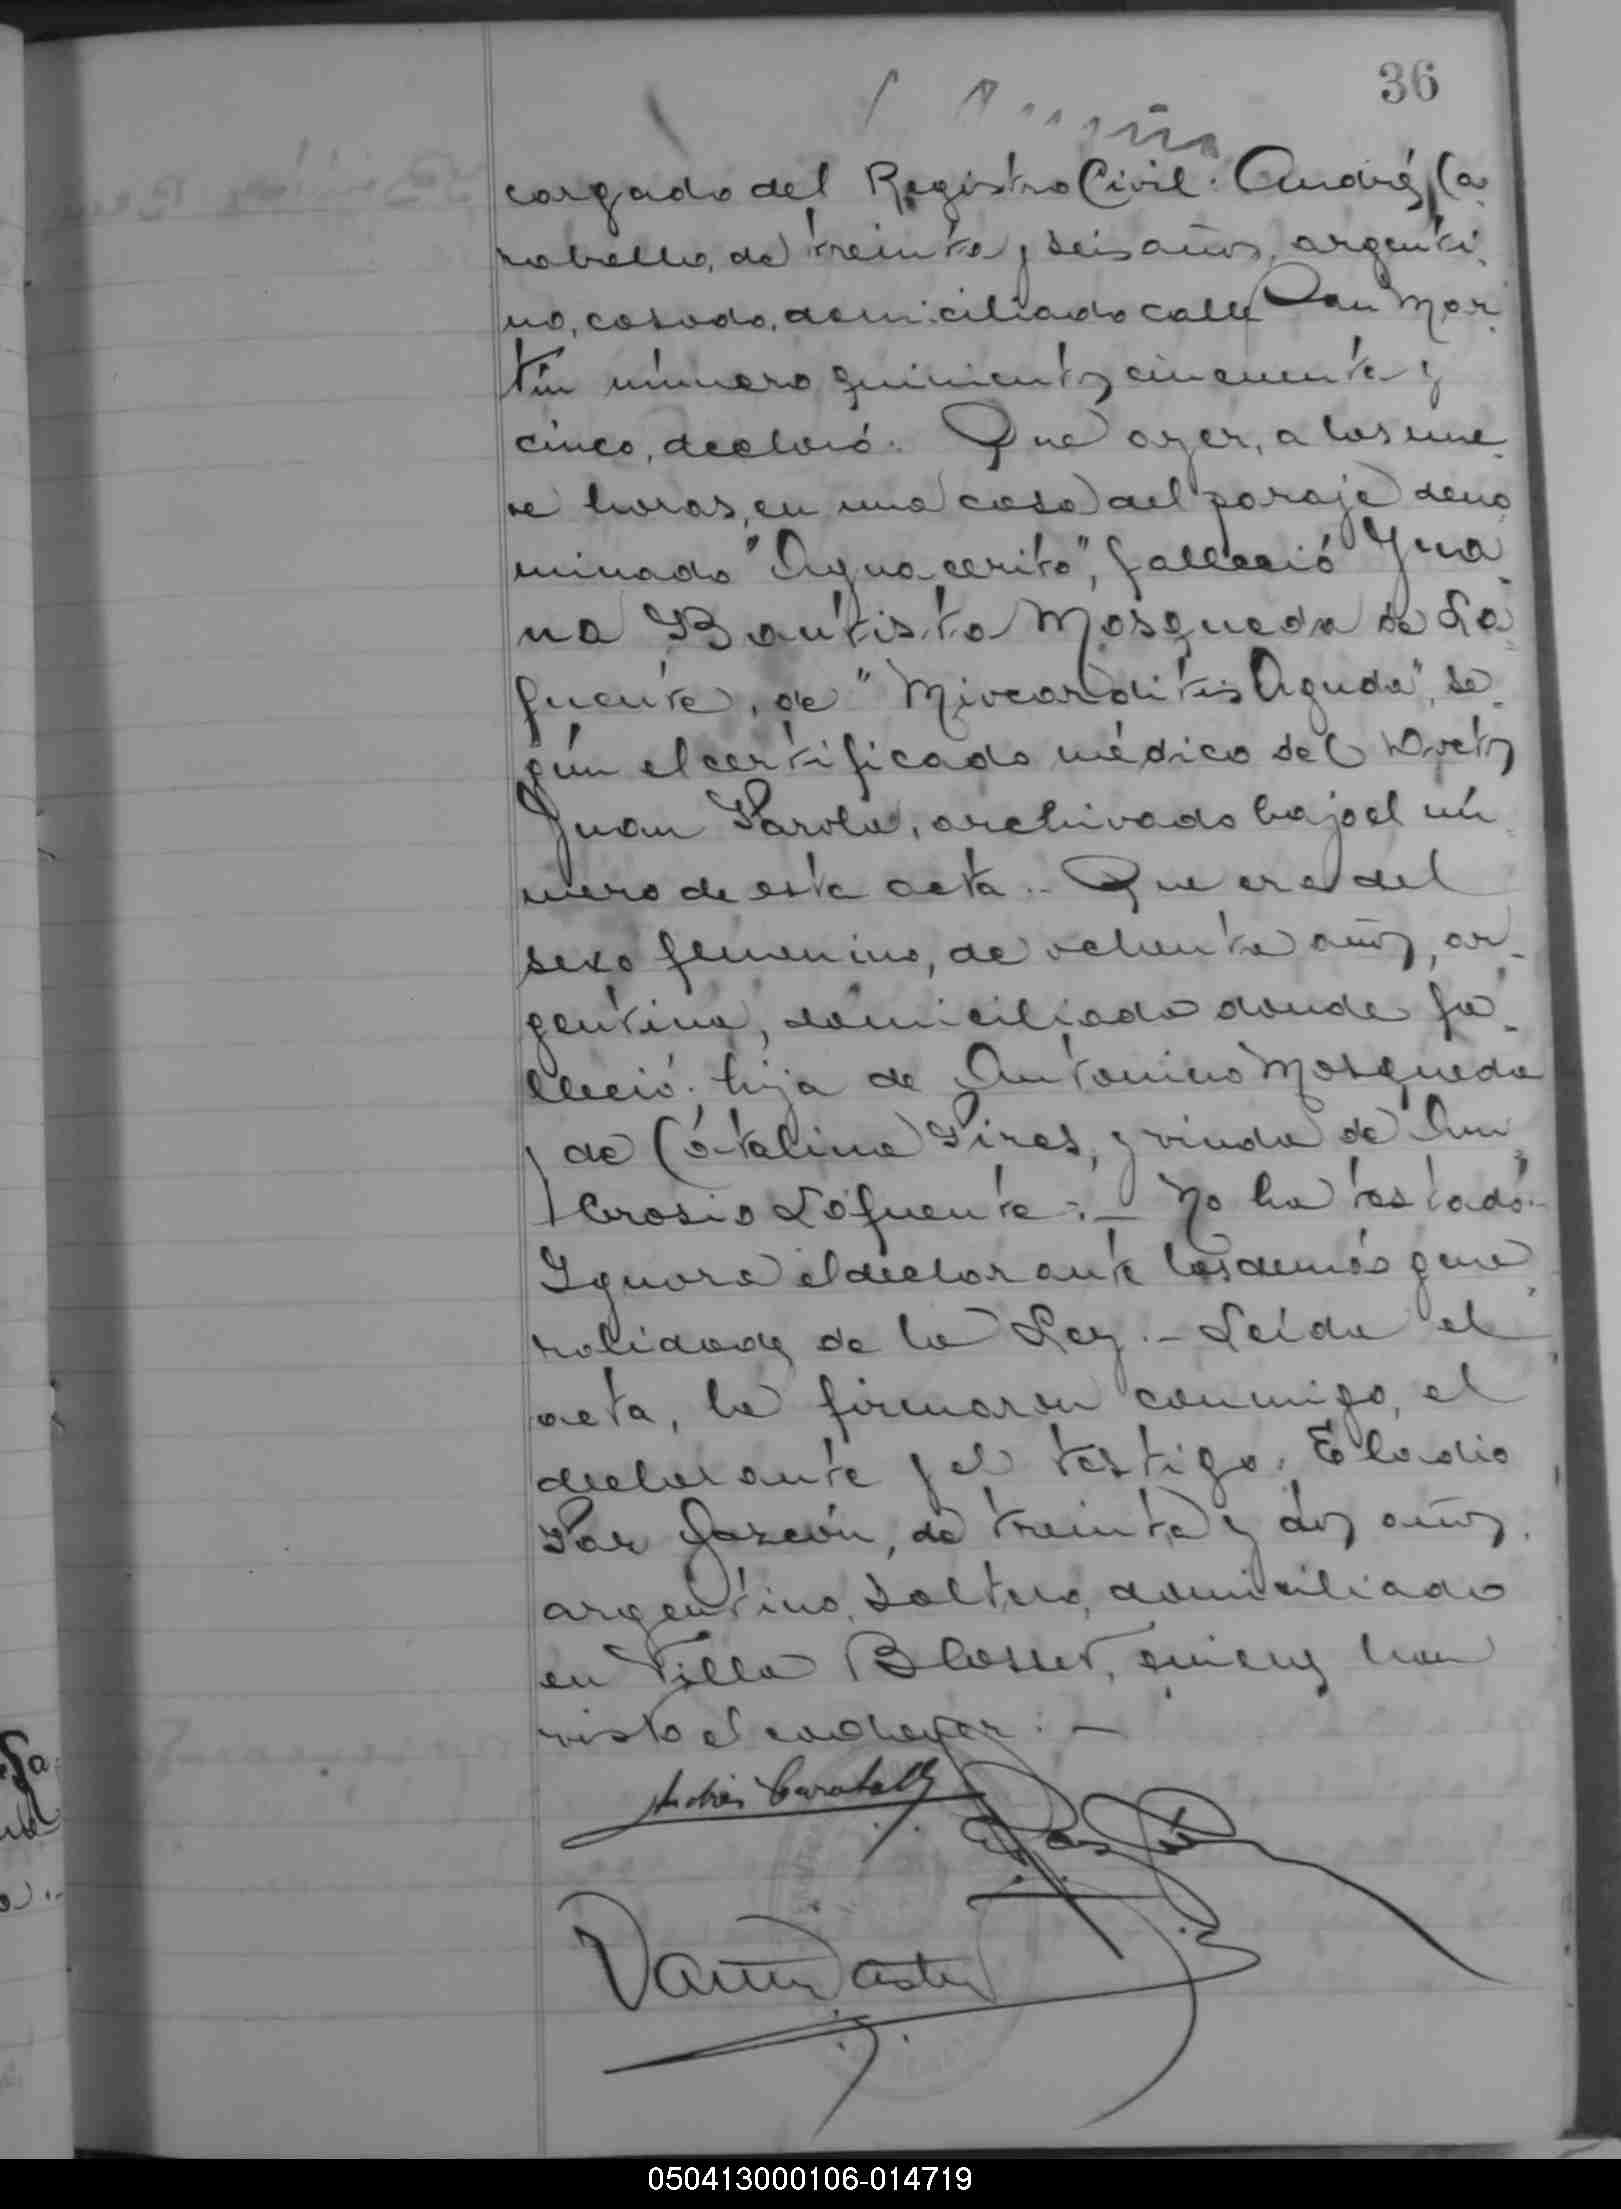 36
cargado del Registro Civil: Andrés Ca-
rabello, de treinta y seis años, argenti-
no, casado, domiciliado calle San Mar-
tín número quinientos cincuenta y
cinco, declaró: Que ayer, a las nue-
ve horas, en una casa del paraje deno
minado "Agua cerito", falleció Jua-
na Bautista Mosqueda de La-
fuente, de "Miocarditis Aguda", se-
gún el certificado médico del Doctor
Juan Parola, archivado bajo el nú-
mero de esta acta.- Que era del
sexo femenino, de ochenta años, ar-
gentina, domiciliada donde fa-
lleció: hija de Antonino Mosqueda
y de Catalina Pires, y viuda de Am-
brosio Lafuente:- No ha testado.-
Ignora el declarante las demás gene-
ralidades de la Ley.- Leída el
acta, la firmaron conmigo, el
declarante y el testigo: Eladio
Gascón, de treinta y dos años,
argentino, soltero, domiciliado
en Villa, quienes han
visto el cadaver:-
Andrés Carabello
050413000106-014719